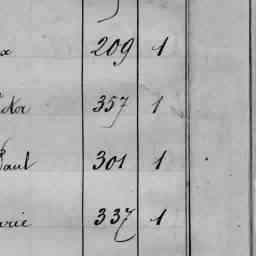 x 209 1
ctor 357 1
Paul 301 1
arie 337 1